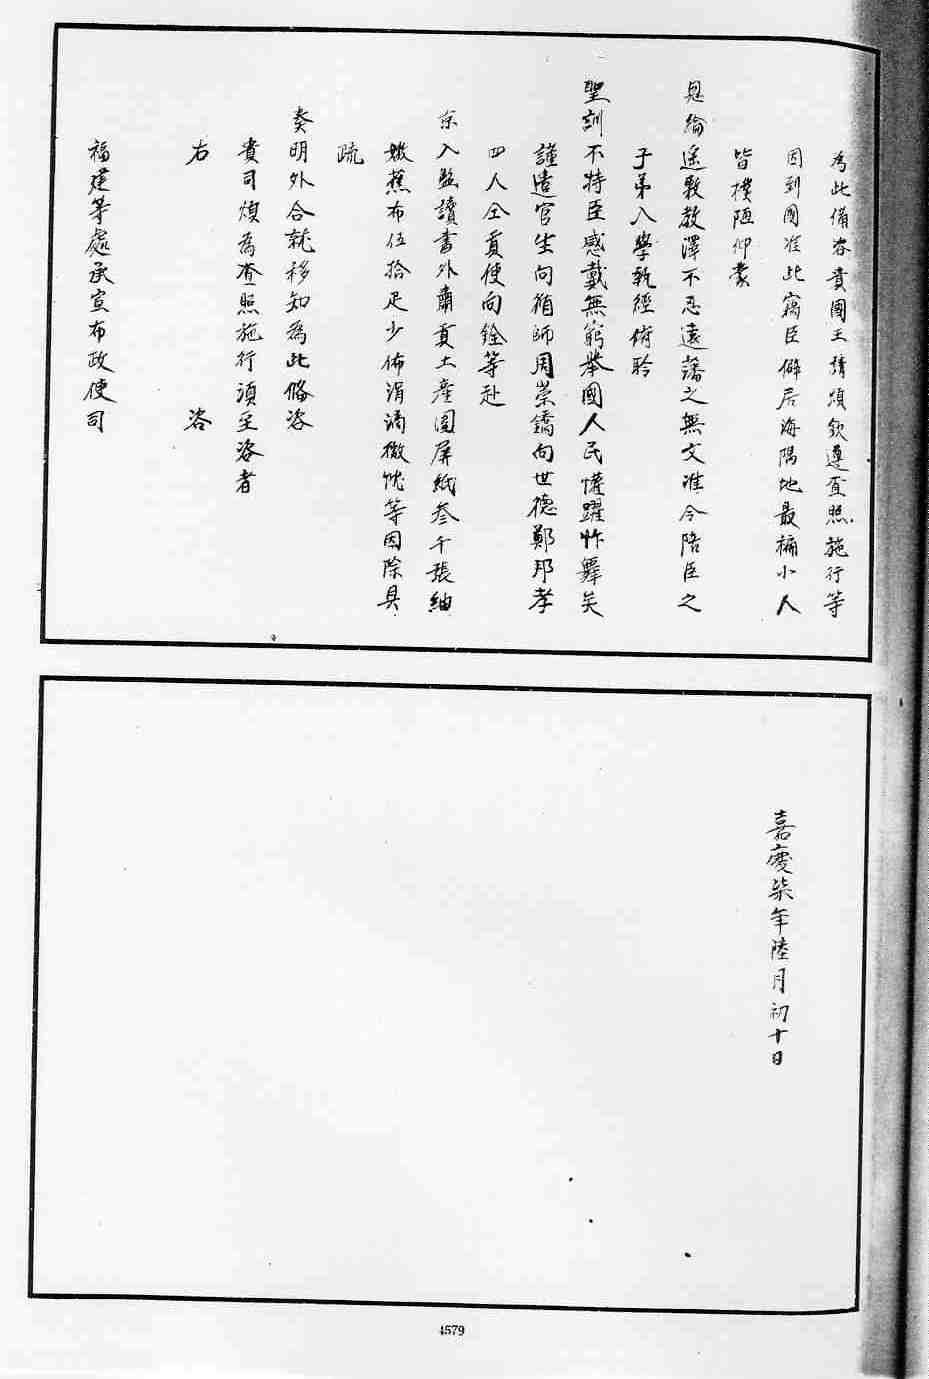 為此備咨貴國王請煩欽遵查照施行等
因到國准此竊臣僻居海隅地最褊小人
皆樸陋仰蒙
恩綸遙敷教澤不忍遠藩之無文准令陪臣之
子弟入學執經俯聆
聖訓不特臣感戴無窮舉國人民懽躍忭舞矣
謹遣官生向循師周崇鐈向世德鄭邦孝
四人仝貢使向銓等赴
京入監讀書外肅貢土產圍屏紙叁千張紬
嫩蕉布伍拾疋少佈涓滴微忱等因除具
疏
奏明外合就移知為此備咨
貴司煩為查照施行須至咨者
右咨
福建等處承宣布政使司
嘉慶柒年陸月初十日
4579